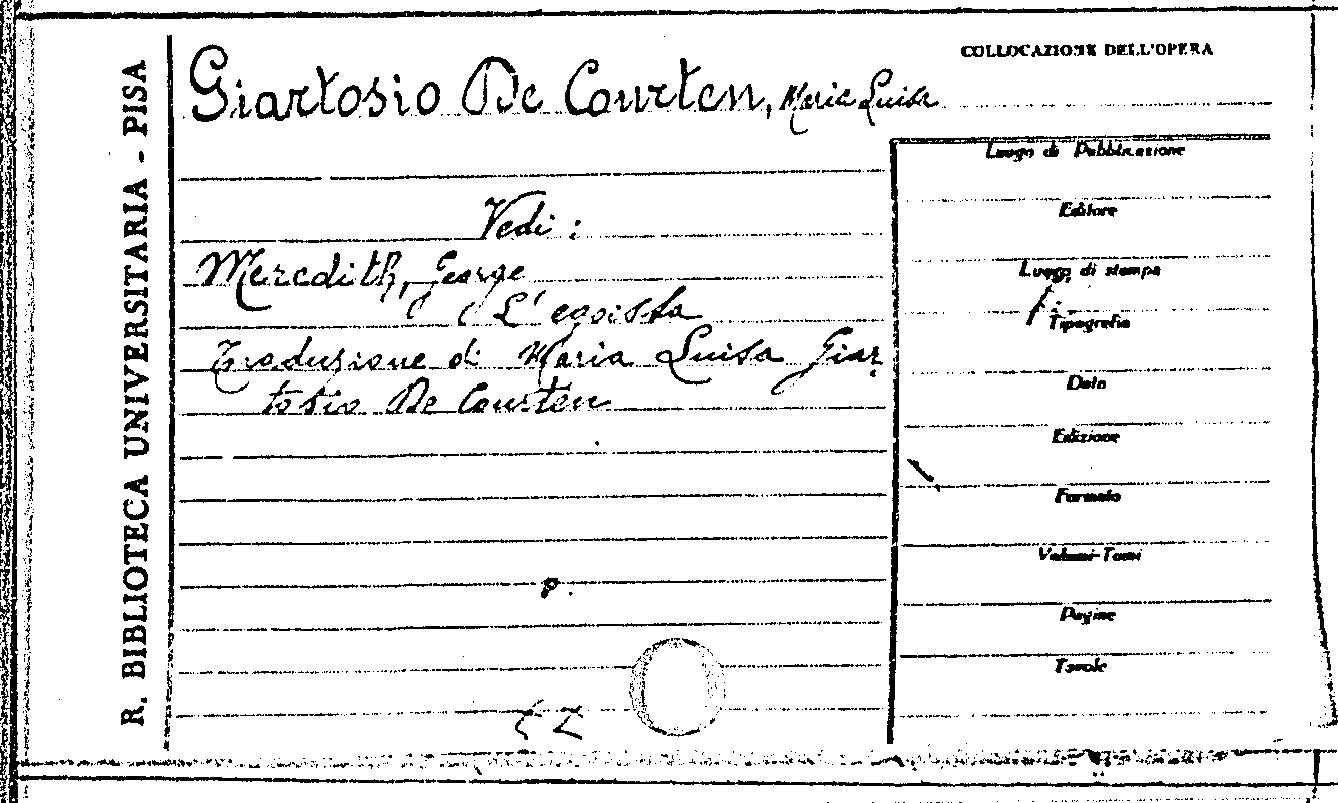 R. BIBLIOTECA UNIVERSITARIA - PISA
COLLOCAZIONE DELL'OPERA
Giartosio De Courten, Maria Luisa
Vedi:
Meredith, George
L'egoista
Traduzione di Maria Luisa Giar
tosio De Courten
Luogo di Pubblicazione
Editore
Luogo di stampa
Tipografia
Data
Edizione
Formato
Volumi-Tomi
Pagine
Tavole